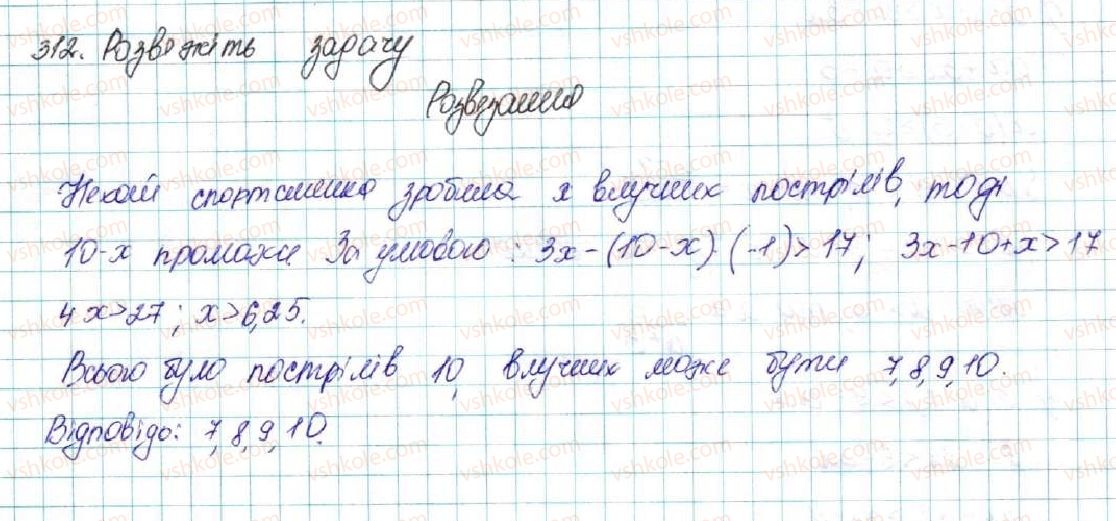 312. Розв'яжіть задачу
Розвязання
Нехай спортсменка зробила x влучних пострілів, тоді
10-x промахи За умовою: 3x-(10-x)·(-1)>17; 3x-10+x>17
4x>27; x>6,25.
Всього було пострілів 10, влучних може бути 7,8,9,10.
Відповідь: 7,8,9,10.